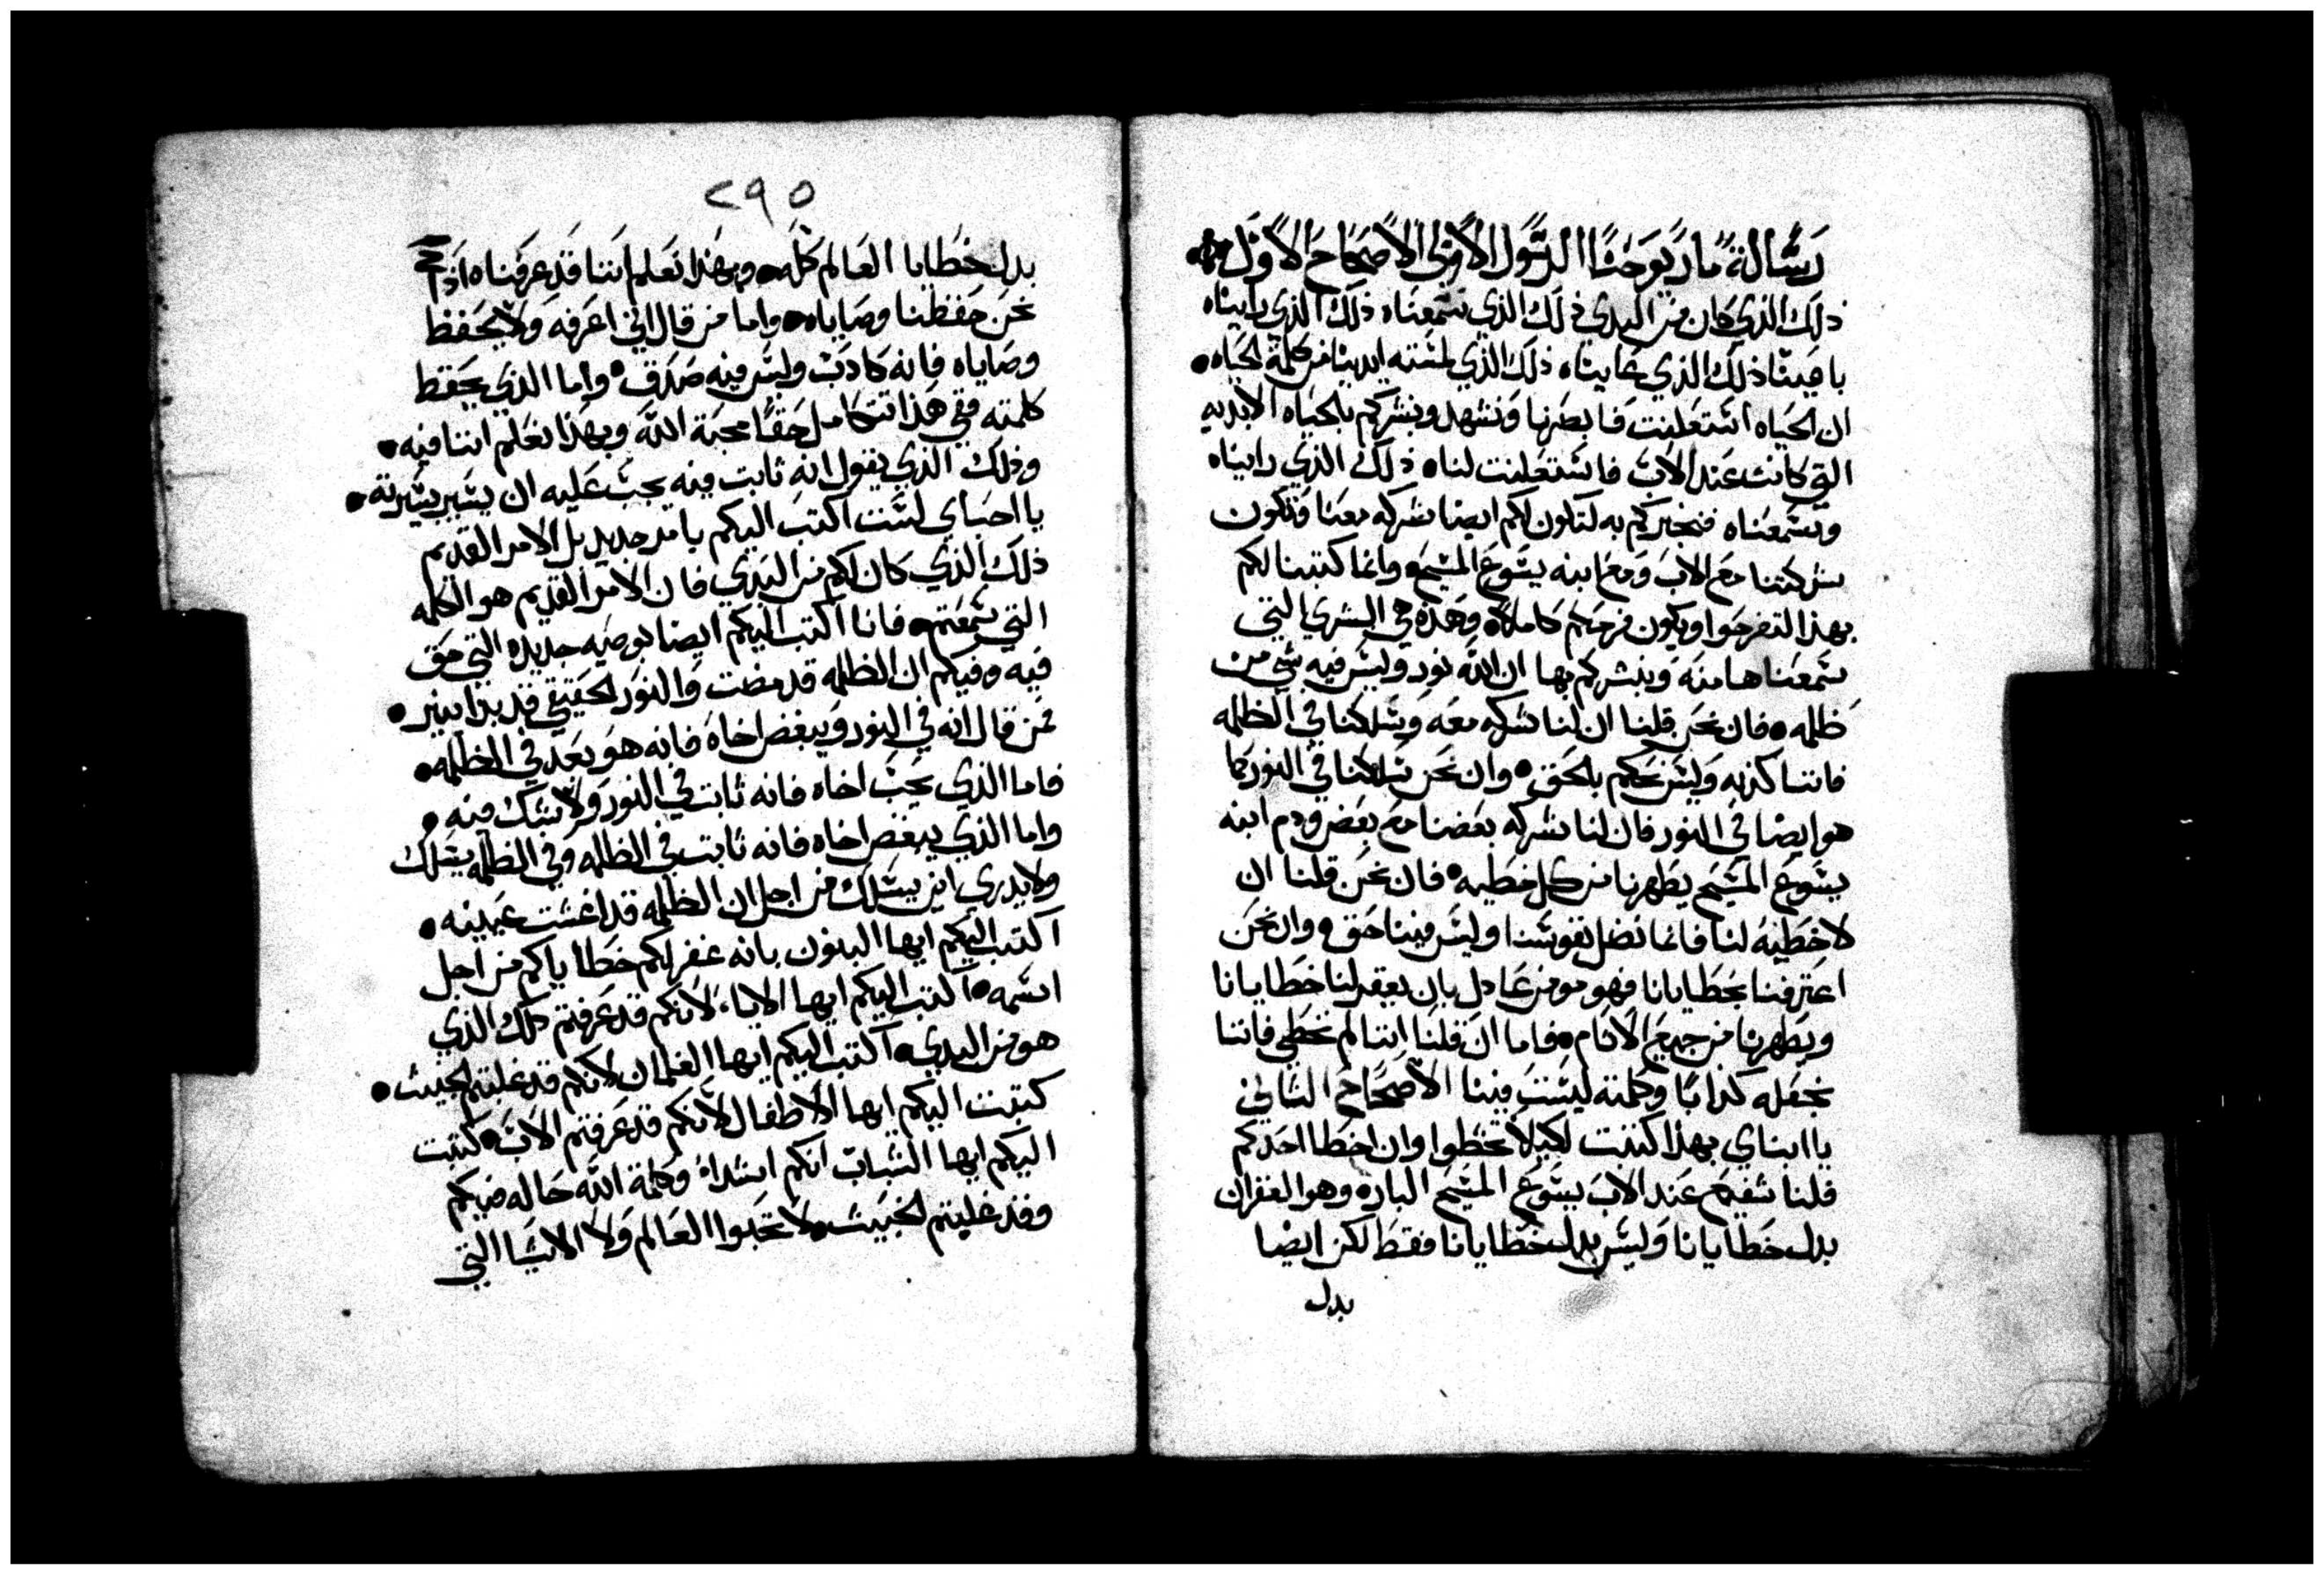 رسالة مار يوحنا الرسول الاولى الاصحاح الاول
ذلك الذي كان من البدي ذلك الذي سمعناه ذلك الذي رايناه
باعيننا ذلك الذي عايناه ذلك الذي لمسته ايدينا من كلمة الحياه
ان الحياه استعلنت فابصرنها ونشهد ونبشركم بالحياه الابديه
التي كانت عند الاب فاستعلنت لنا ه ذلك الذي رايناه
وسمعناه فنخبركم به لتكون لكم ايضا شركه معنا وتكون
شركتنا مع الاب ومع ابنه يسوع المسيح وانما كتبنا لكم
بهذا لتفرحوا ويكون فرحكم كاملا وهذه هي البشري التي
سمعناها منه ونبشركم بها ان الله نور وليس فيه شي من
ظلمه فان نحن قلنا ان لنا شركه معه وسلكنا في الظلمه
فاننا كذبه وليس نحكم بالحق وان نحن سلكنا في النور كما
هو ايضا في النور فان لنا شركه بعضنا مع بعض ودم ابنه
يسوع المسيح يطهرنا من كل خطيه فان نحن قلنا ان
لا خطيه لنا فانما نضل نفوسنا وليس فينا حق وان نحن
اعترفنا بخطايانا فهو مومن عادل بان يغفر لنا خطايانا
ويطهرنا من جميع الاثام فاما ان قلنا اننا لم نخطي فاننا
نجعله كذابا وكلمته ليست فينا الاصحاح الثاني
يا ابناي بهذا كتبت لكيلا تخطوا وان اخطا احدكم
فلنا شفيع عند الاب يسوع المسيح الباره وهو الغفران
بدل خطايانا وليس بدل خطايانا فقط لكن ايضا
بدل
٢٩٥
بدل خطايا العالم كله وبهذا نعلم اننا قد عرفناه اذا
نحن حفظنا وصاياه واما من قال اني اعرفه ولا يحفظ
وصاياه فانه كادب وليس فيه صدق واما الذي يحفظ
كلمته ففي هذا تتكامل حقا محبة الله وبهذا نعلم اننا فيه
وذلك الذي يقول انه ثابت فيه يجب عليه ان يسير بسيرته
يا احباي لست اكتب اليكم بامر جديد بل الامر القديم
ذلك الذي كان لكم من البدي فان الامر القديم هو الكلمه
التي سمعتم فانا اكتب اليكم ايضا بوصيه جديده التي حق
فيه وفيكم ان الظلمه قد مضت والنور الحقيقي قد بدا ينير
فمن قال انه في النور ويبغض اخاه فانه هو بعد في الظلمه
فاما الذي يحب اخاه فانه ثابت في النور ولا شك فيه
واما الذي يبغض اخاه فانه ثابت في الظلمه وفي الظلمه يسلك
ولا يدري اين يسلك من اجل ان الظلمه قد اغشت عينيه
اكتب اليكم ايها البنون بانه غفر لكم خطاياكم من اجل
اسمه اكتب اليكم ايها الابا لانكم قد عرفتم دلك الذي
هو من البدي اكتب اليكم ايها الغلمان لانكم قد غلبتم الخبيث
كتبت اليكم ايها الاطفال لانكم قد عرفتم الاب كتبت
اليكم ايها الشباب انكم اشداء وكلمة الله حاله فيكم
وقد غلبتم الخبيث ولا تحبوا العالم ولا الاشيا التي